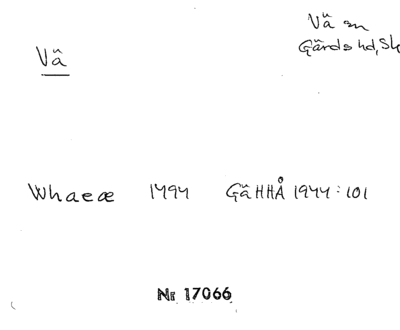 Vä sn
Gärds hd, Sk
Vä
Whaeæ 1494 GäHHÅ 1944:101
Nr 17066